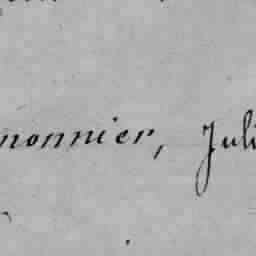 monnier, Juli